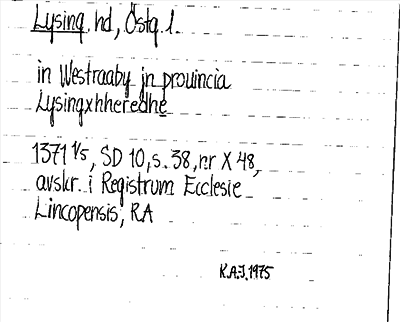 Lysing hd, Östg l.
in Westraaby jn prouincia
Lysingxhheredhe
1371 1/5, SD 10, s. 38, nr X 48,
avskr. i Registrum Ecclesie
Lincopensis, RA
K.A.J. 1975